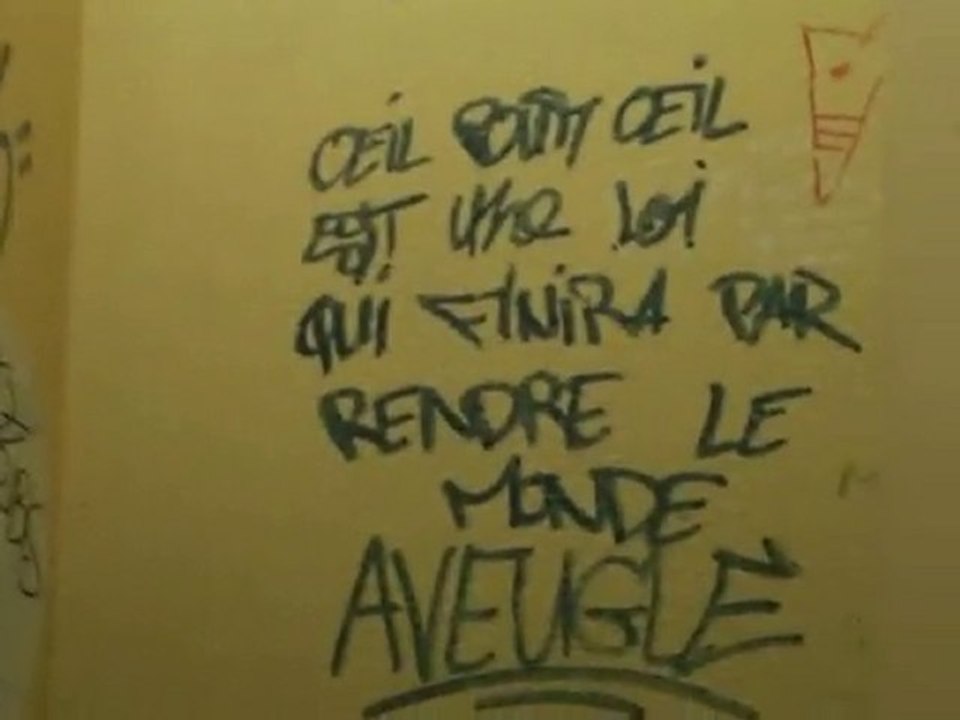 OEIL POUR OEIL
EST UNE LOI
QUI FINIRA PAR
RENDRE LE
MONDE
AVEUGLE